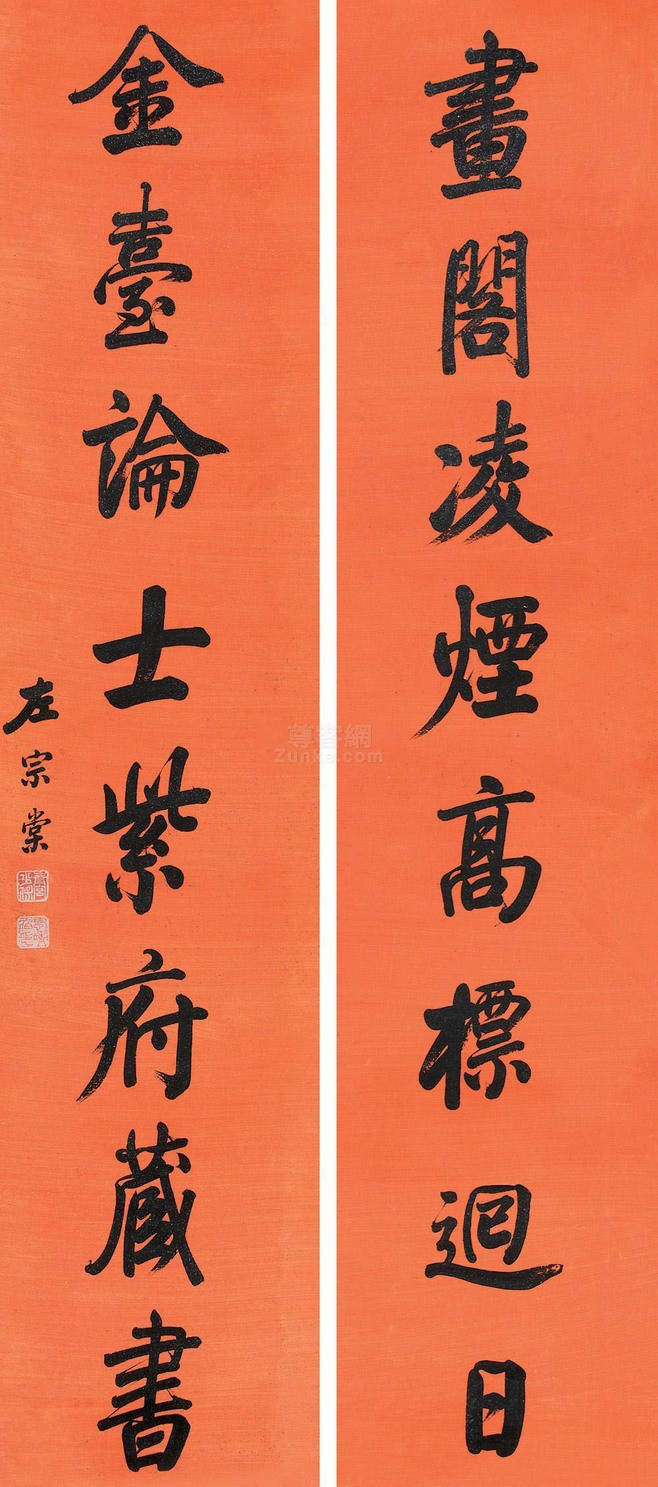 畫閣凌煙高標迴日
金臺論士紫府藏書
左宗棠
尊客網
Zunke.com